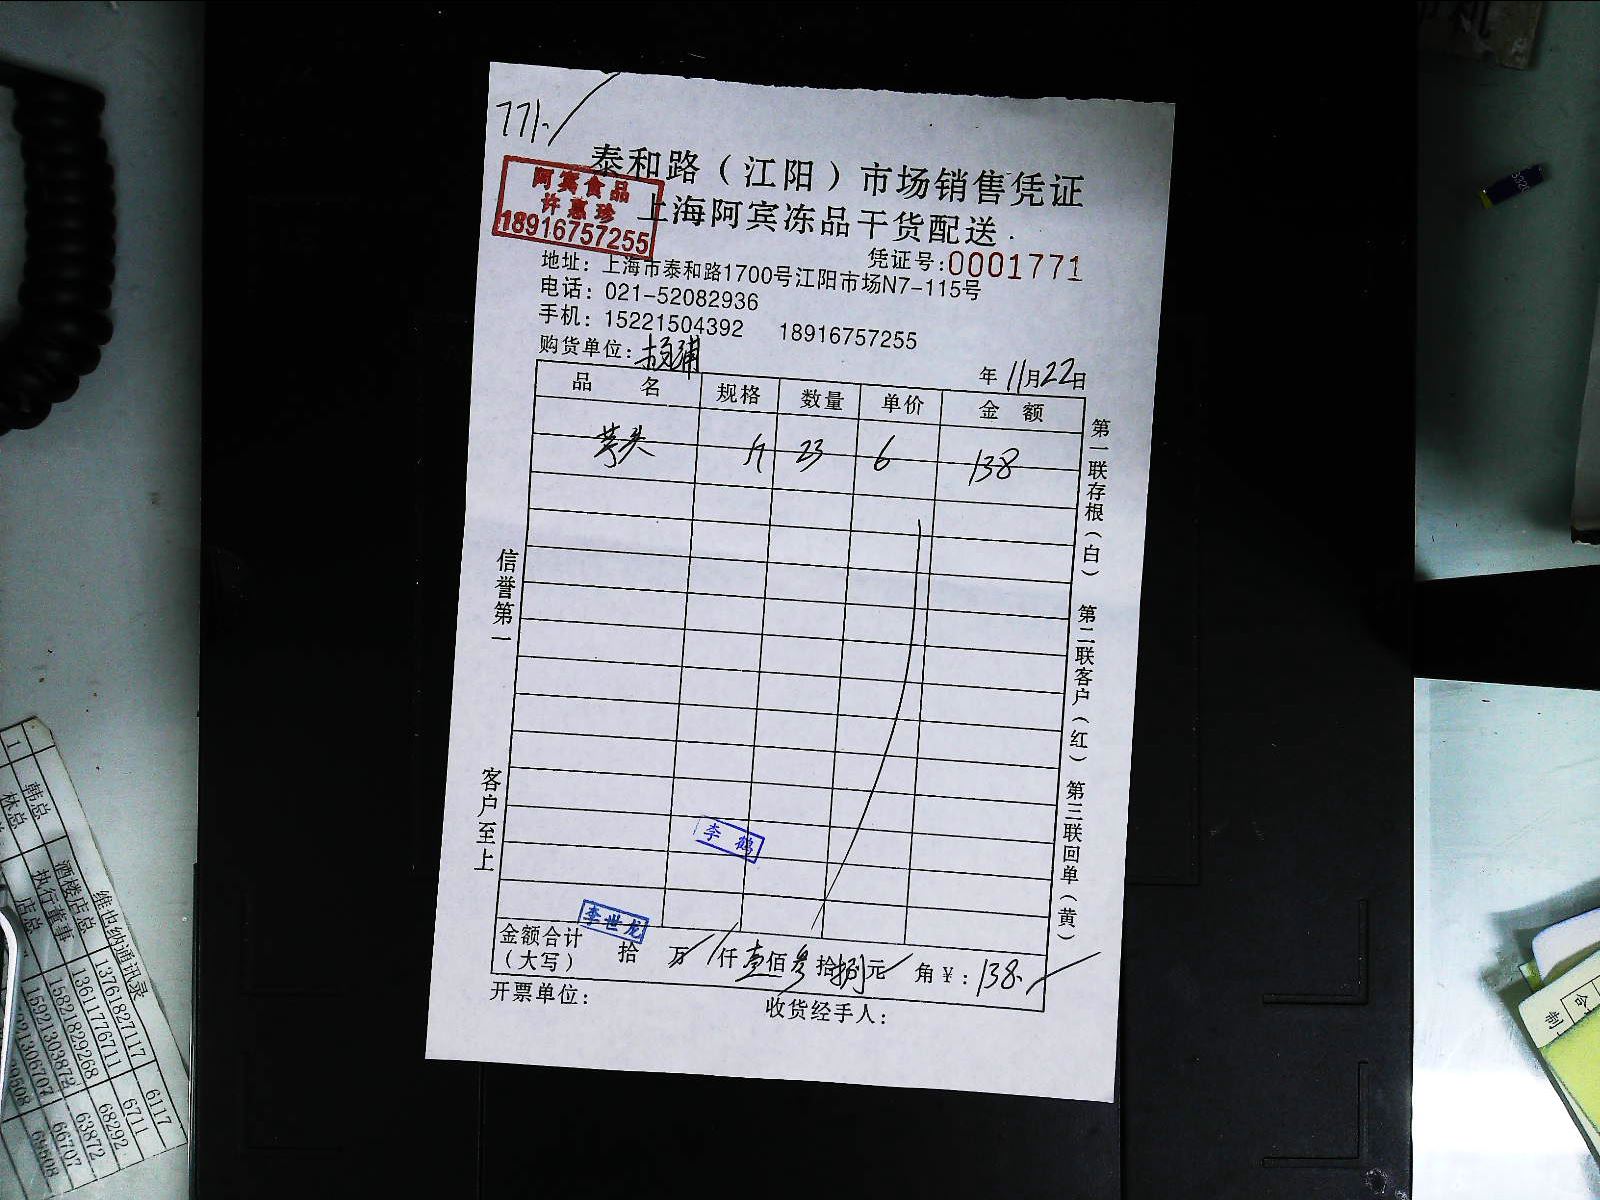 771.
泰和路（江阳）市场销售凭证
阿宾食品
许惠珍
18916757255
上海阿宾冻品干货配送
凭证号:0001771
地址：上海市泰和路1700号江阳市场N7-115号
电话：021-52082936
手机：15221504392 18916757255
购货单位：
年 11月22日
品 名 规格 数量 单价 金 额
芋头 斤 23 6 138
第一联存根（白） 第二联客户（红） 第三联回单（黄）
信誉第一 客户至上
李鹤
李世龙
金额合计（大写） 拾 万 仟 壹佰 叁拾 捌元 角 ¥：138.
开票单位： 收货经手人：
维也纳通讯录
1 韩总 酒楼店总 13761827117 6117
林总 执行董事 13611776711 6711
店总 15821829268 68292
15921303872 63872
66707